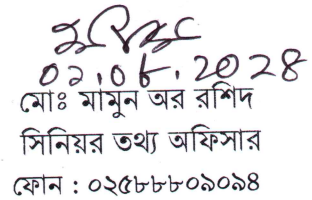 ০২.০৮.২০২৪
মোঃ মামুন অর রশিদ
সিনিয়র তথ্য অফিসার
ফোন : ০২৫৮৮৮০৯০৯৪